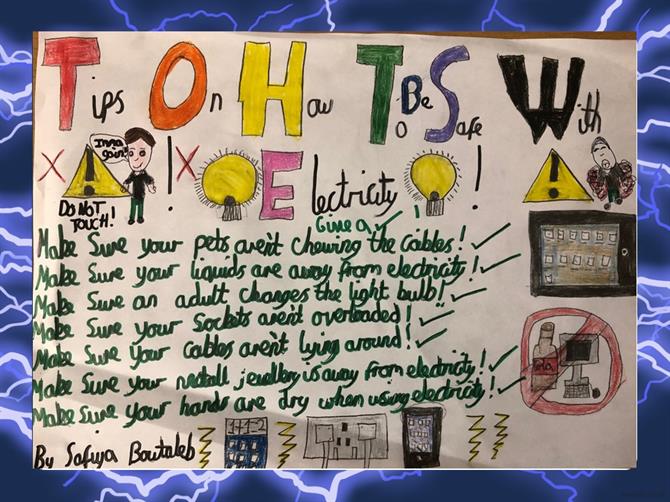 Tips On How To Be Safe With
Electricity!
Inna
DO NOT
TOUCH!
Give a ✓!
Make Sure your pets aren't chewing the cables! ✓
Make Sure your liquids are away from electricity! ✓
Make Sure an adult changes the light bulb! ✓
Make Sure your Sockets aren't overloaded! ✓
Make Sure your cables aren't lying around! ✓
Make Sure your metall jewellery is away from electricity! ✓
Make Sure your hands are dry when using electricity! ✓
By Safiya Boutaleb
1+1=2